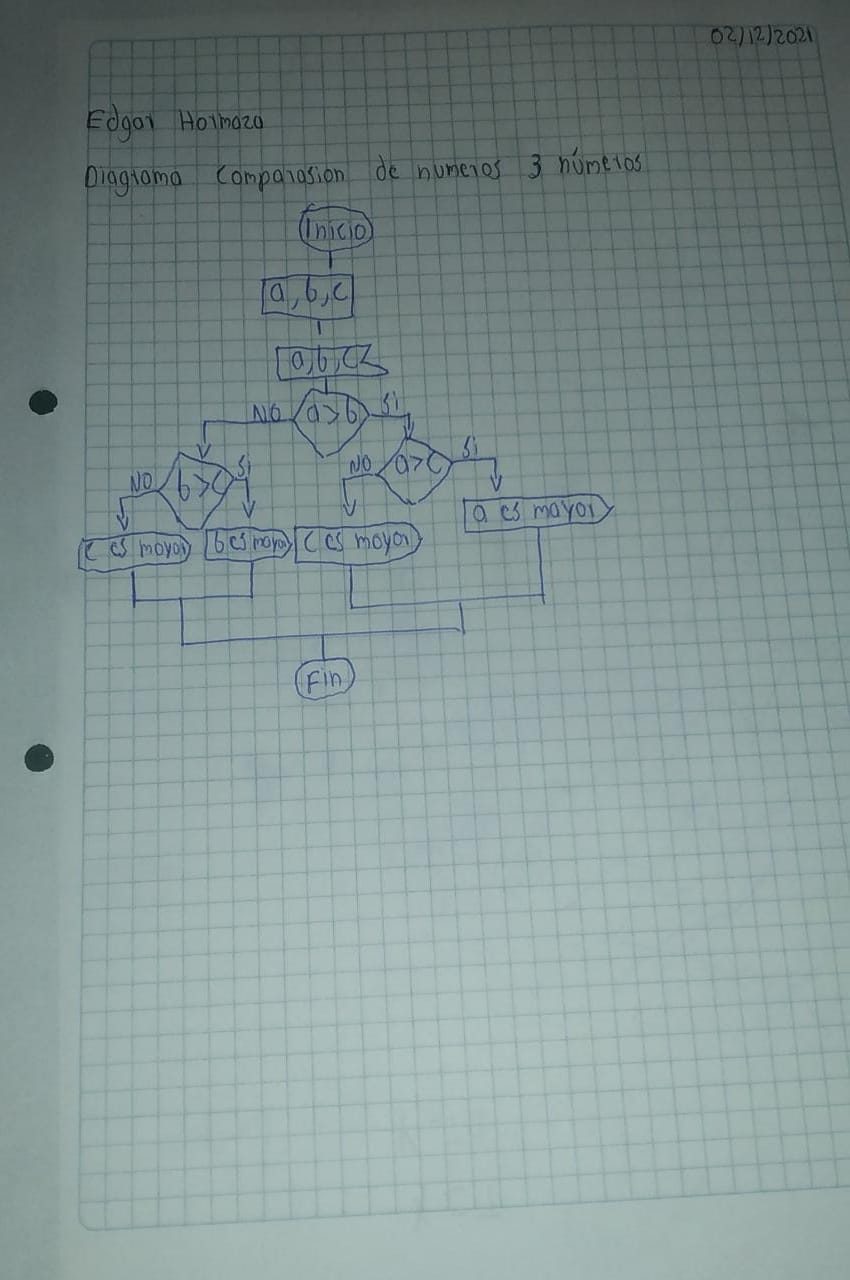 02/12/2021
Edgar Hormaza
Diagrama Comparasion de numeros 3 números
Inicio
a, b, c
a, b, c
NO a>b Si
NO b>c Si
NO a>c Si
a es mayor
c es mayor
b es mayor
c es mayor
Fin